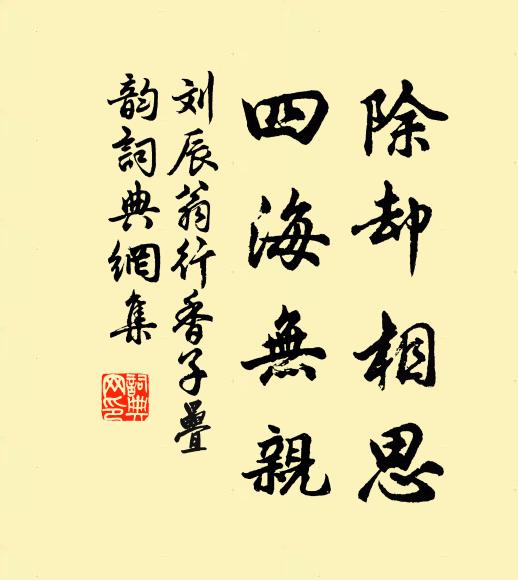 除却相思
四海無親
刘辰翁行香子疊
韵詞典網集
詞典
网印